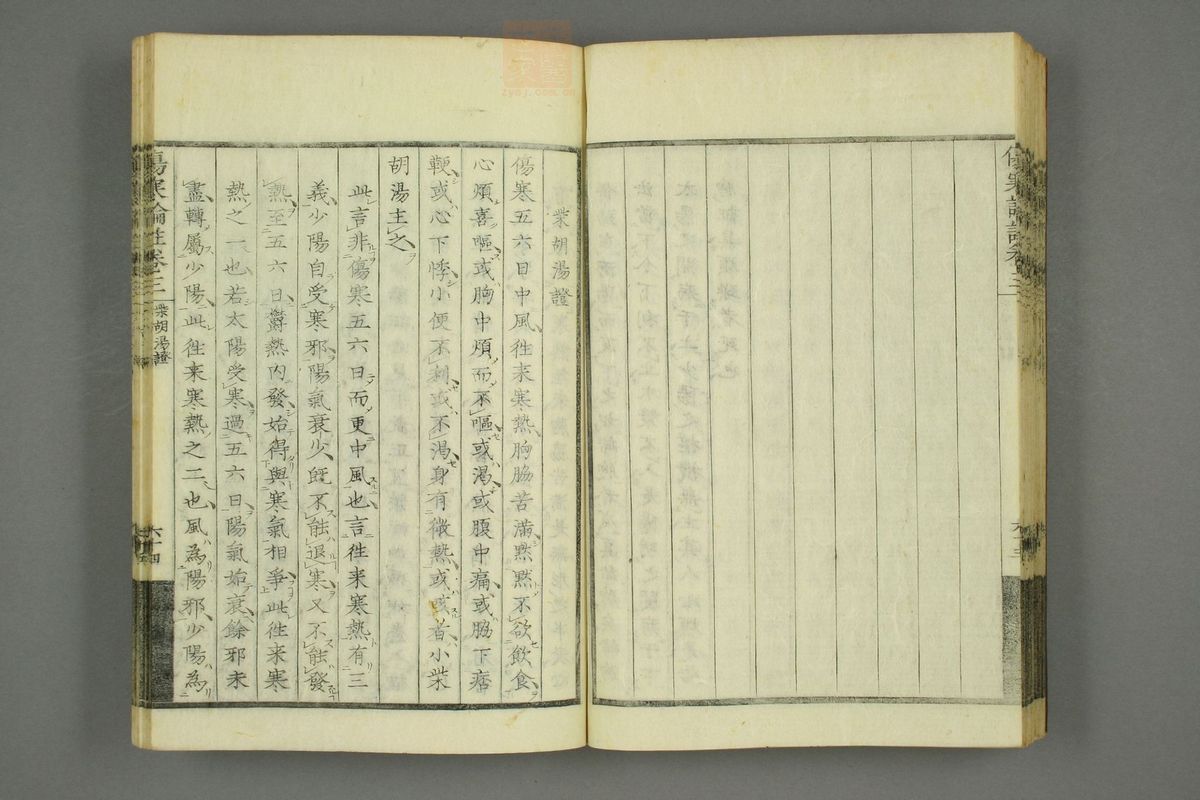 傷寒論註卷三
柴胡湯證
傷寒五六日中風往来寒熱胸脇苦滿黙黙不欲飲食
心煩喜嘔或胸中煩而不嘔或渴或腹中痛或脇下痞
鞕或心下悸小便不利或不渴身有微熱或欬者小柴
胡湯主之
此言非傷寒五六日而更中風也言往来寒熱有三
義少陽自受寒邪陽氣衰少既不能退寒又不能發
熱至五六日欝熱内發始得與寒氣相爭此往来寒
熱之一也若太陽受寒過五六日陽氣始衰餘邪未
盡轉屬少陽此往来寒熱之二也風為陽邪少陽為
傷寒論註卷三
柴胡湯證
六十四
zysj.com.cn